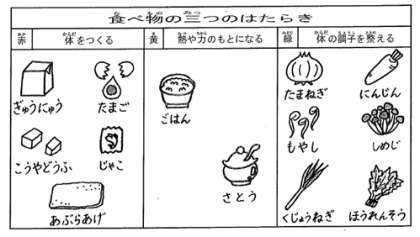 食べ物の三つのはたらき
赤 体をつくる
黄 熱や力のもとになる
緑 体の調子を整える
ぎゅうにゅう
たまご
こうやどうふ
じゃこ
あぶらあげ
ごはん
さとう
たまねぎ
にんじん
もやし
しめじ
くじょうねぎ
ほうれんそう